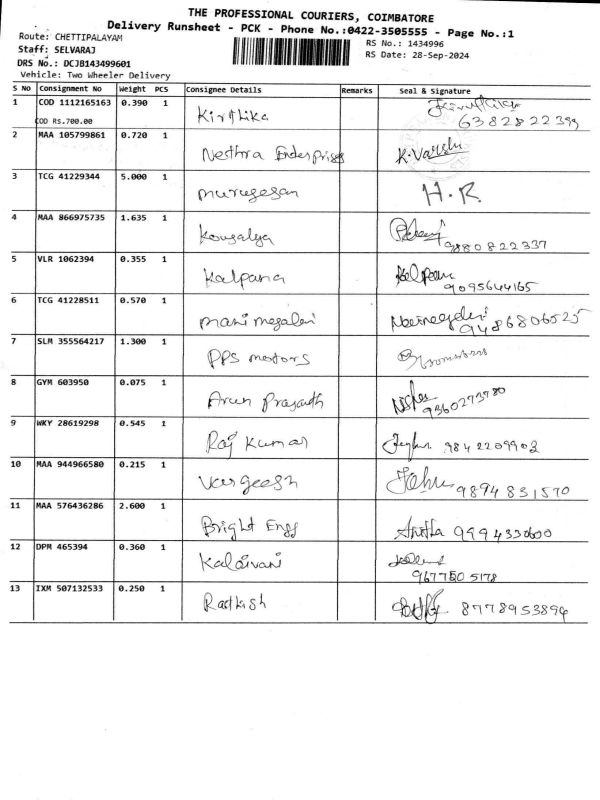 THE PROFESSIONAL COURIERS, COIMBATORE
Delivery Runsheet - PCK - Phone No.:0422-3505555 - Page No.:1
Route: CHETTIPALAYAM
Staff: SELVARAJ
DRS No.: DCJB143499601
Vehicle: Two Wheeler Delivery
RS No.: 1434996
RS Date: 28-Sep-2024
S No Consignment No Weight PCS Consignee Details Remarks Seal & Signature
1 COD 1112165163 0.390 1 Kirthika
COD Rs.700.00 6382822399
2 MAA 105799861 0.720 1 Nesthra Enterprises K.Varshu
3 TCG 41229344 5.000 1 murugesan H.R
4 MAA 866975735 1.635 1 Kousalya 9880822337
5 VLR 1062394 0.355 1 Kalpana 9095644165
6 TCG 41228511 0.570 1 mani megalai 9486806525
7 SLM 355564217 1.300 1 PPS motors
8 GYM 603950 0.075 1 Arun Prasanth 9360273780
9 WKY 28619298 0.545 1 Raj Kumar 9842209903
10 MAA 944966580 0.215 1 Vargeesh John 9894831570
11 MAA 576436286 2.600 1 Bright Engg Anitha 9994330600
12 DPM 465394 0.360 1 Kalaivani 9677505178
13 IXM 507132533 0.250 1 Rathish 8778953894